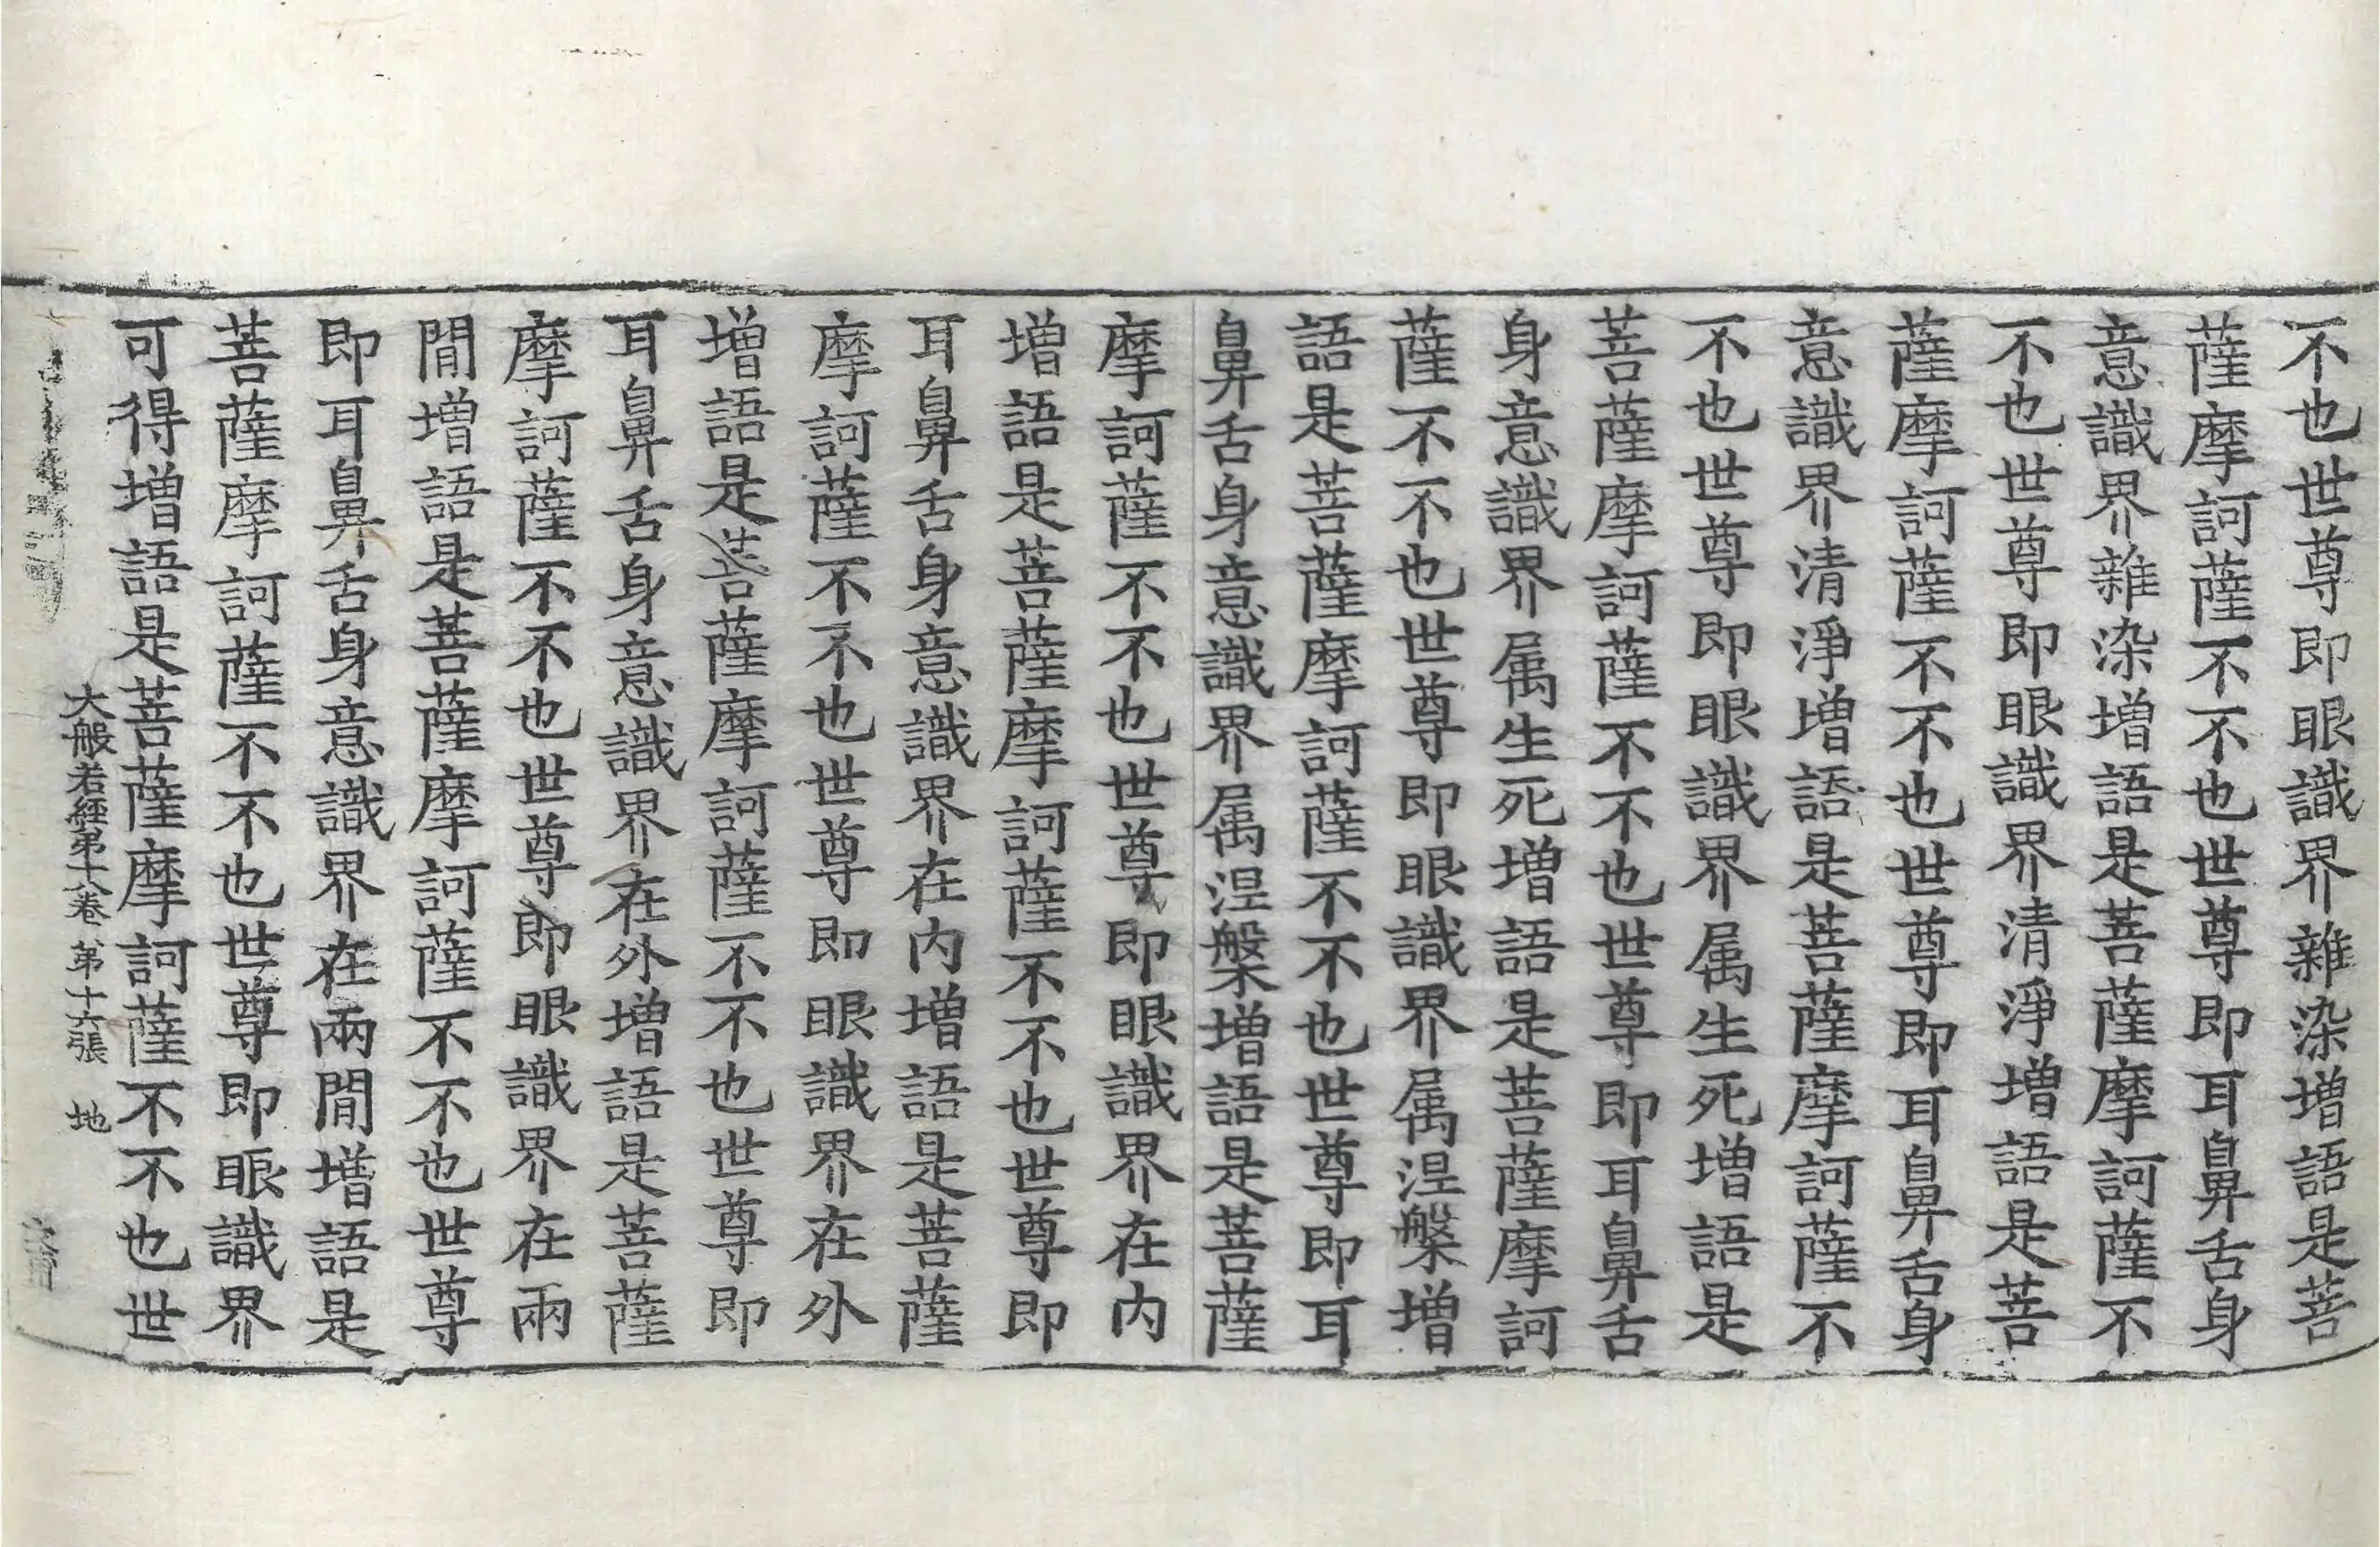 不也世尊即眼識界雜染增語是菩
薩摩訶薩不不也世尊即耳鼻舌身
意識界雜染增語是菩薩摩訶薩不
不也世尊即眼識界清淨增語是菩
薩摩訶薩不不也世尊即耳鼻舌身
意識界清淨增語是菩薩摩訶薩不
不也世尊即眼識界属生死增語是
菩薩摩訶薩不不也世尊即耳鼻舌
身意識界属生死增語是菩薩摩訶
薩不不也世尊即眼識界属涅槃增
語是菩薩摩訶薩不不也世尊即耳
鼻舌身意識界属涅槃增語是菩薩
摩訶薩不不也世尊即眼識界在内
增語是菩薩摩訶薩不不也世尊即
耳鼻舌身意識界在内增語是菩薩
摩訶薩不不也世尊即眼識界在外
增語是菩薩摩訶薩不不也世尊即
耳鼻舌身意識界在外增語是菩薩
摩訶薩不不也世尊即眼識界在兩
間增語是菩薩摩訶薩不不也世尊
即耳鼻舌身意識界在兩間增語是
菩薩摩訶薩不不也世尊即眼識界
可得增語是菩薩摩訶薩不不也世
大般若経第十八卷 第十六張 地